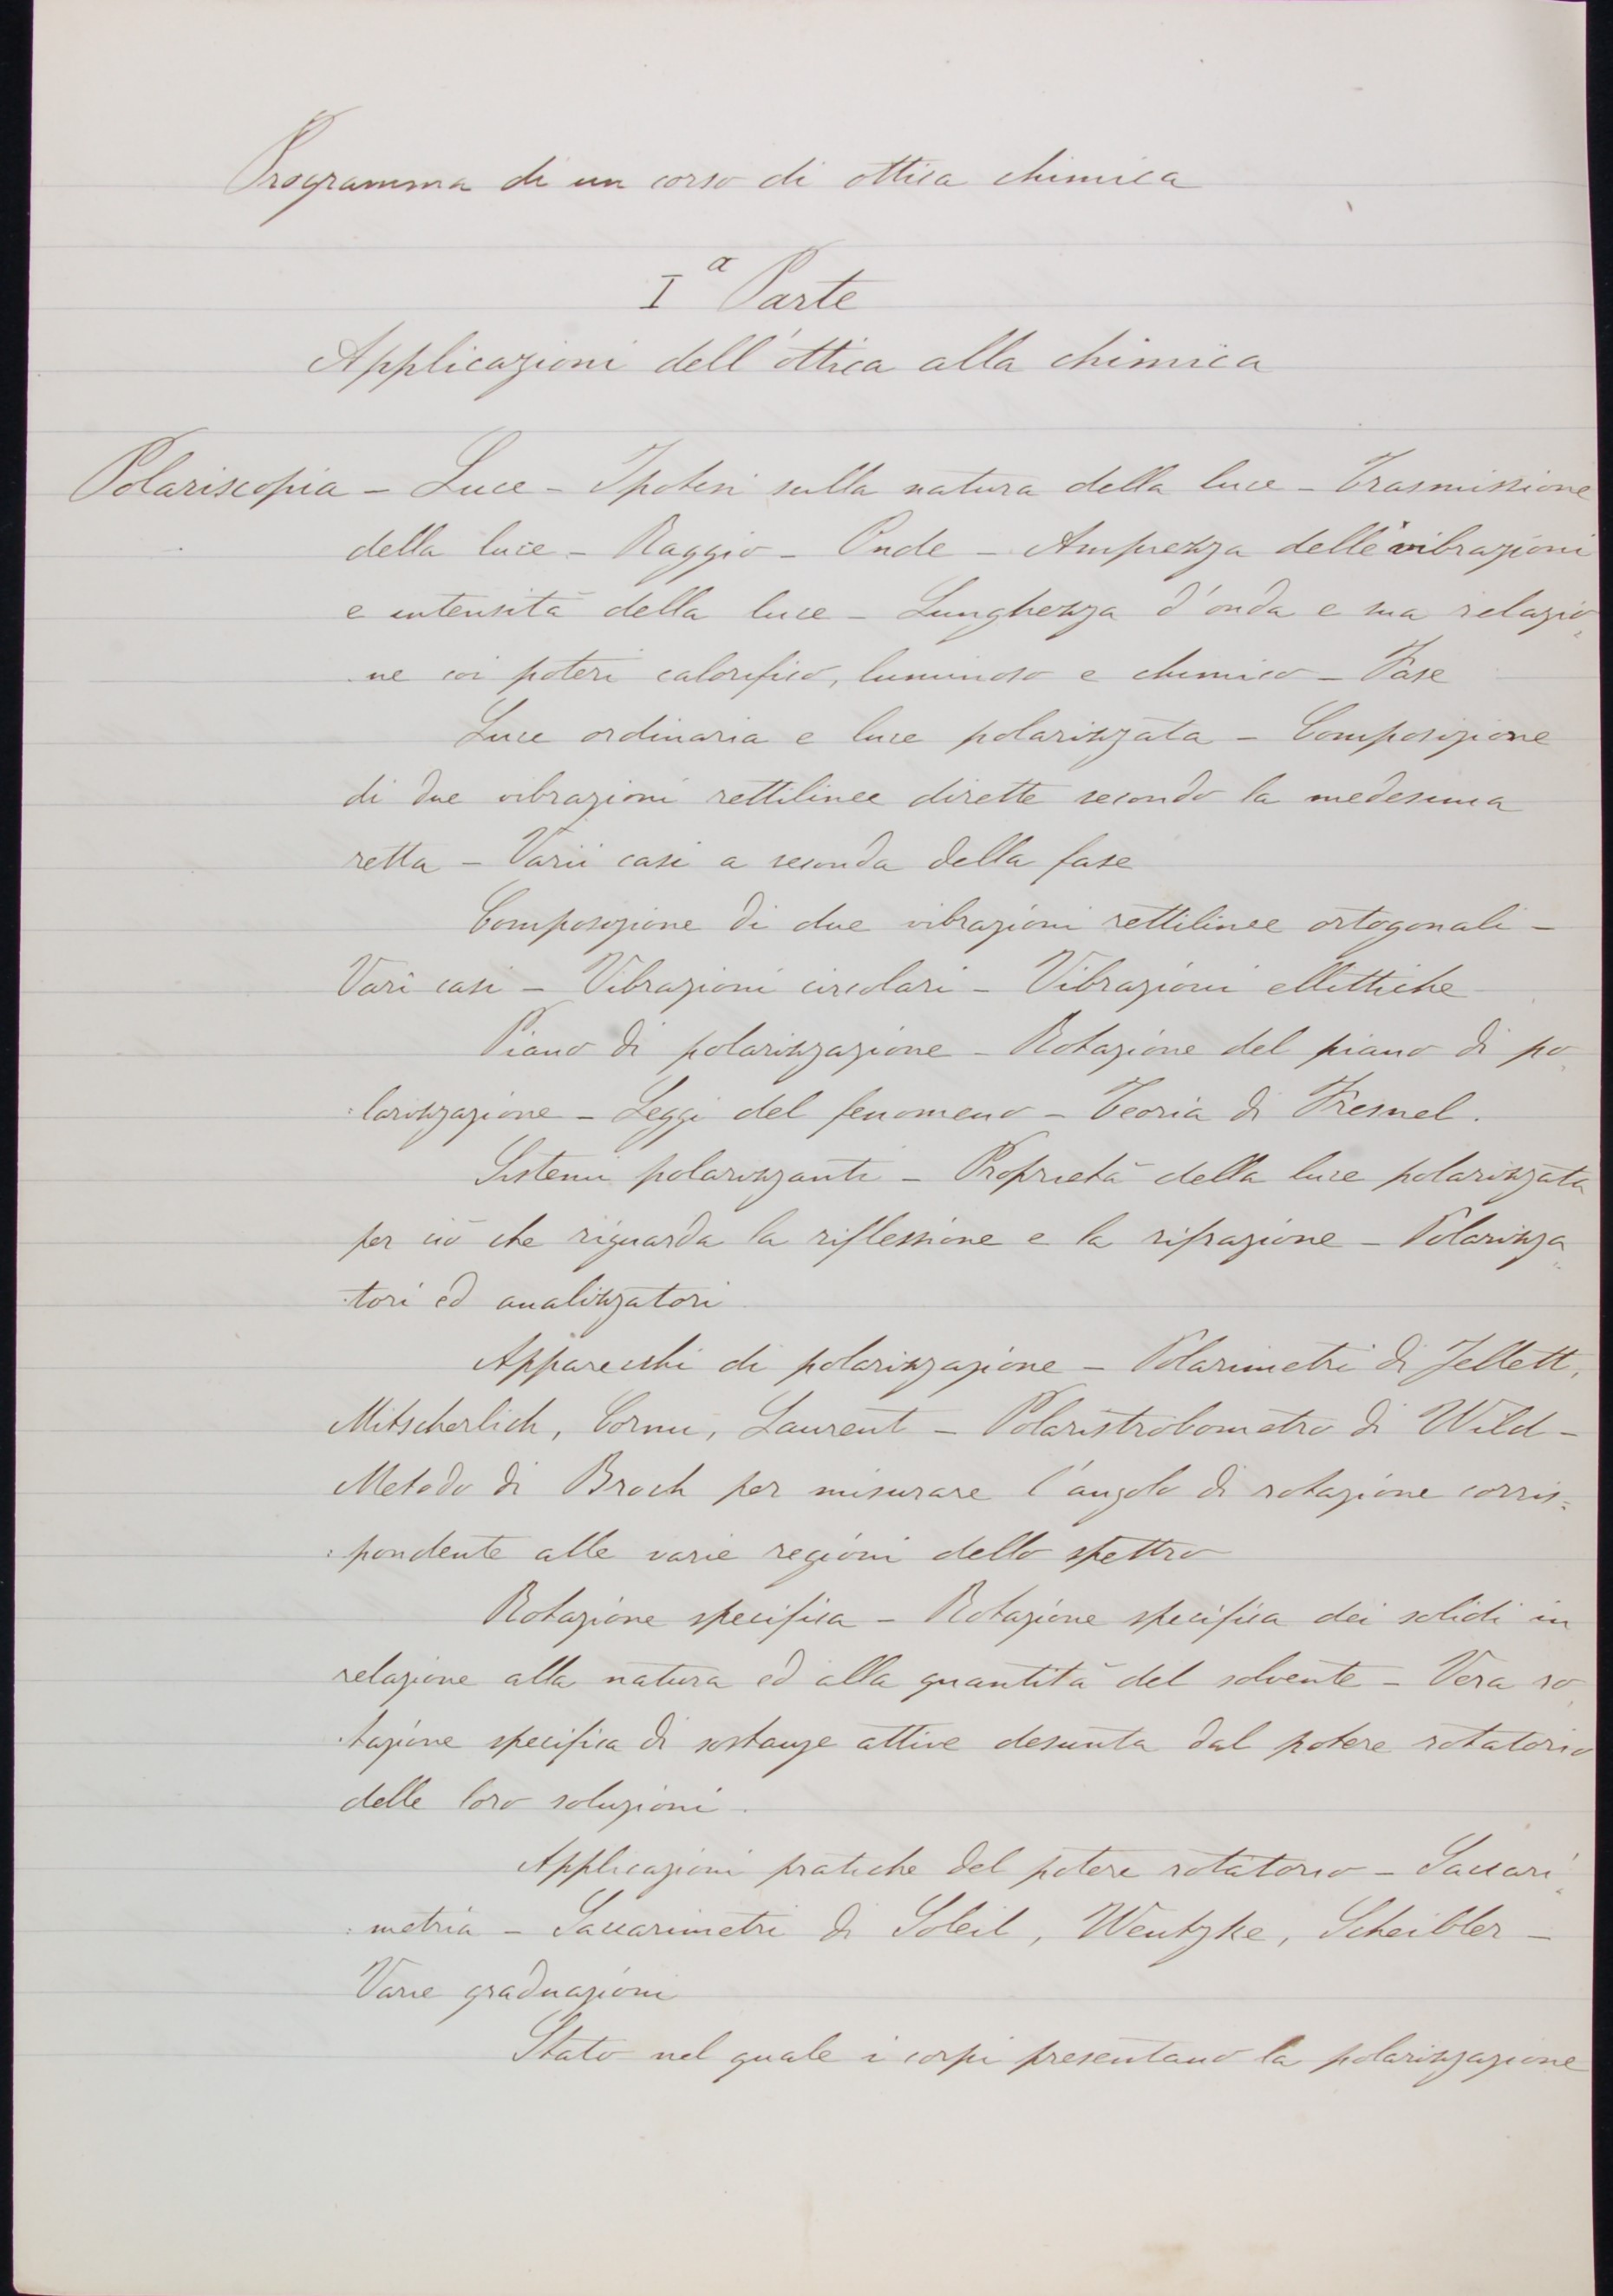 Programma di un corso di ottica chimica
Iª Parte
Applicazioni dell'ottica alla chimica
Polariscopia - Luce - Ipotesi sulla natura della luce - Trasmissione
della luce - Raggio - Onde - Ampiezza delle vibrazioni
e intensità della luce - Lunghezza d'onda e sua relazio=
ne coi poteri calorifico, luminoso e chimico - Fase
Luce ordinaria e luce polarizzata - Composizione
di due vibrazioni rettilinee dirette secondo la medesima
retta - Varii casi a seconda della fase
Composizione di due vibrazioni rettilinee ortogonali -
Vari casi - Vibrazioni circolari - Vibrazioni ellittiche
Piano di polarizzazione - Rotazione del piano di po=
=larizzazione - Leggi del fenomeno - Teoria di Fresnel.
Sistemi polarizzanti - Proprietà della luce polarizzata
per ciò che riguarda la riflessione e la rifrazione - Polarizza=
tori ed analizzatori.
Apparecchi di polarizzazione - Polarimetri di Jellett,
Mitscherlich, Cornu, Laurent - Polaristrobometro di Wild -
Metodo di Broch per misurare l'angolo di rotazione corris=
=pondente alle varie regioni dello spettro
Rotazione specifica - Rotazione specifica dei solidi in
relazione alla natura ed alla quantità del solvente - Vera ro=
tazione specifica di sostanze attive desunta dal potere rotatorio
delle loro soluzioni.
Applicazioni pratiche del potere rotatorio - Saccari=
=metria - Saccarimetri di Soleil, Wentzke, Scheibler -
Varie graduazioni
Stato nel quale i corpi presentano la polarizzazione